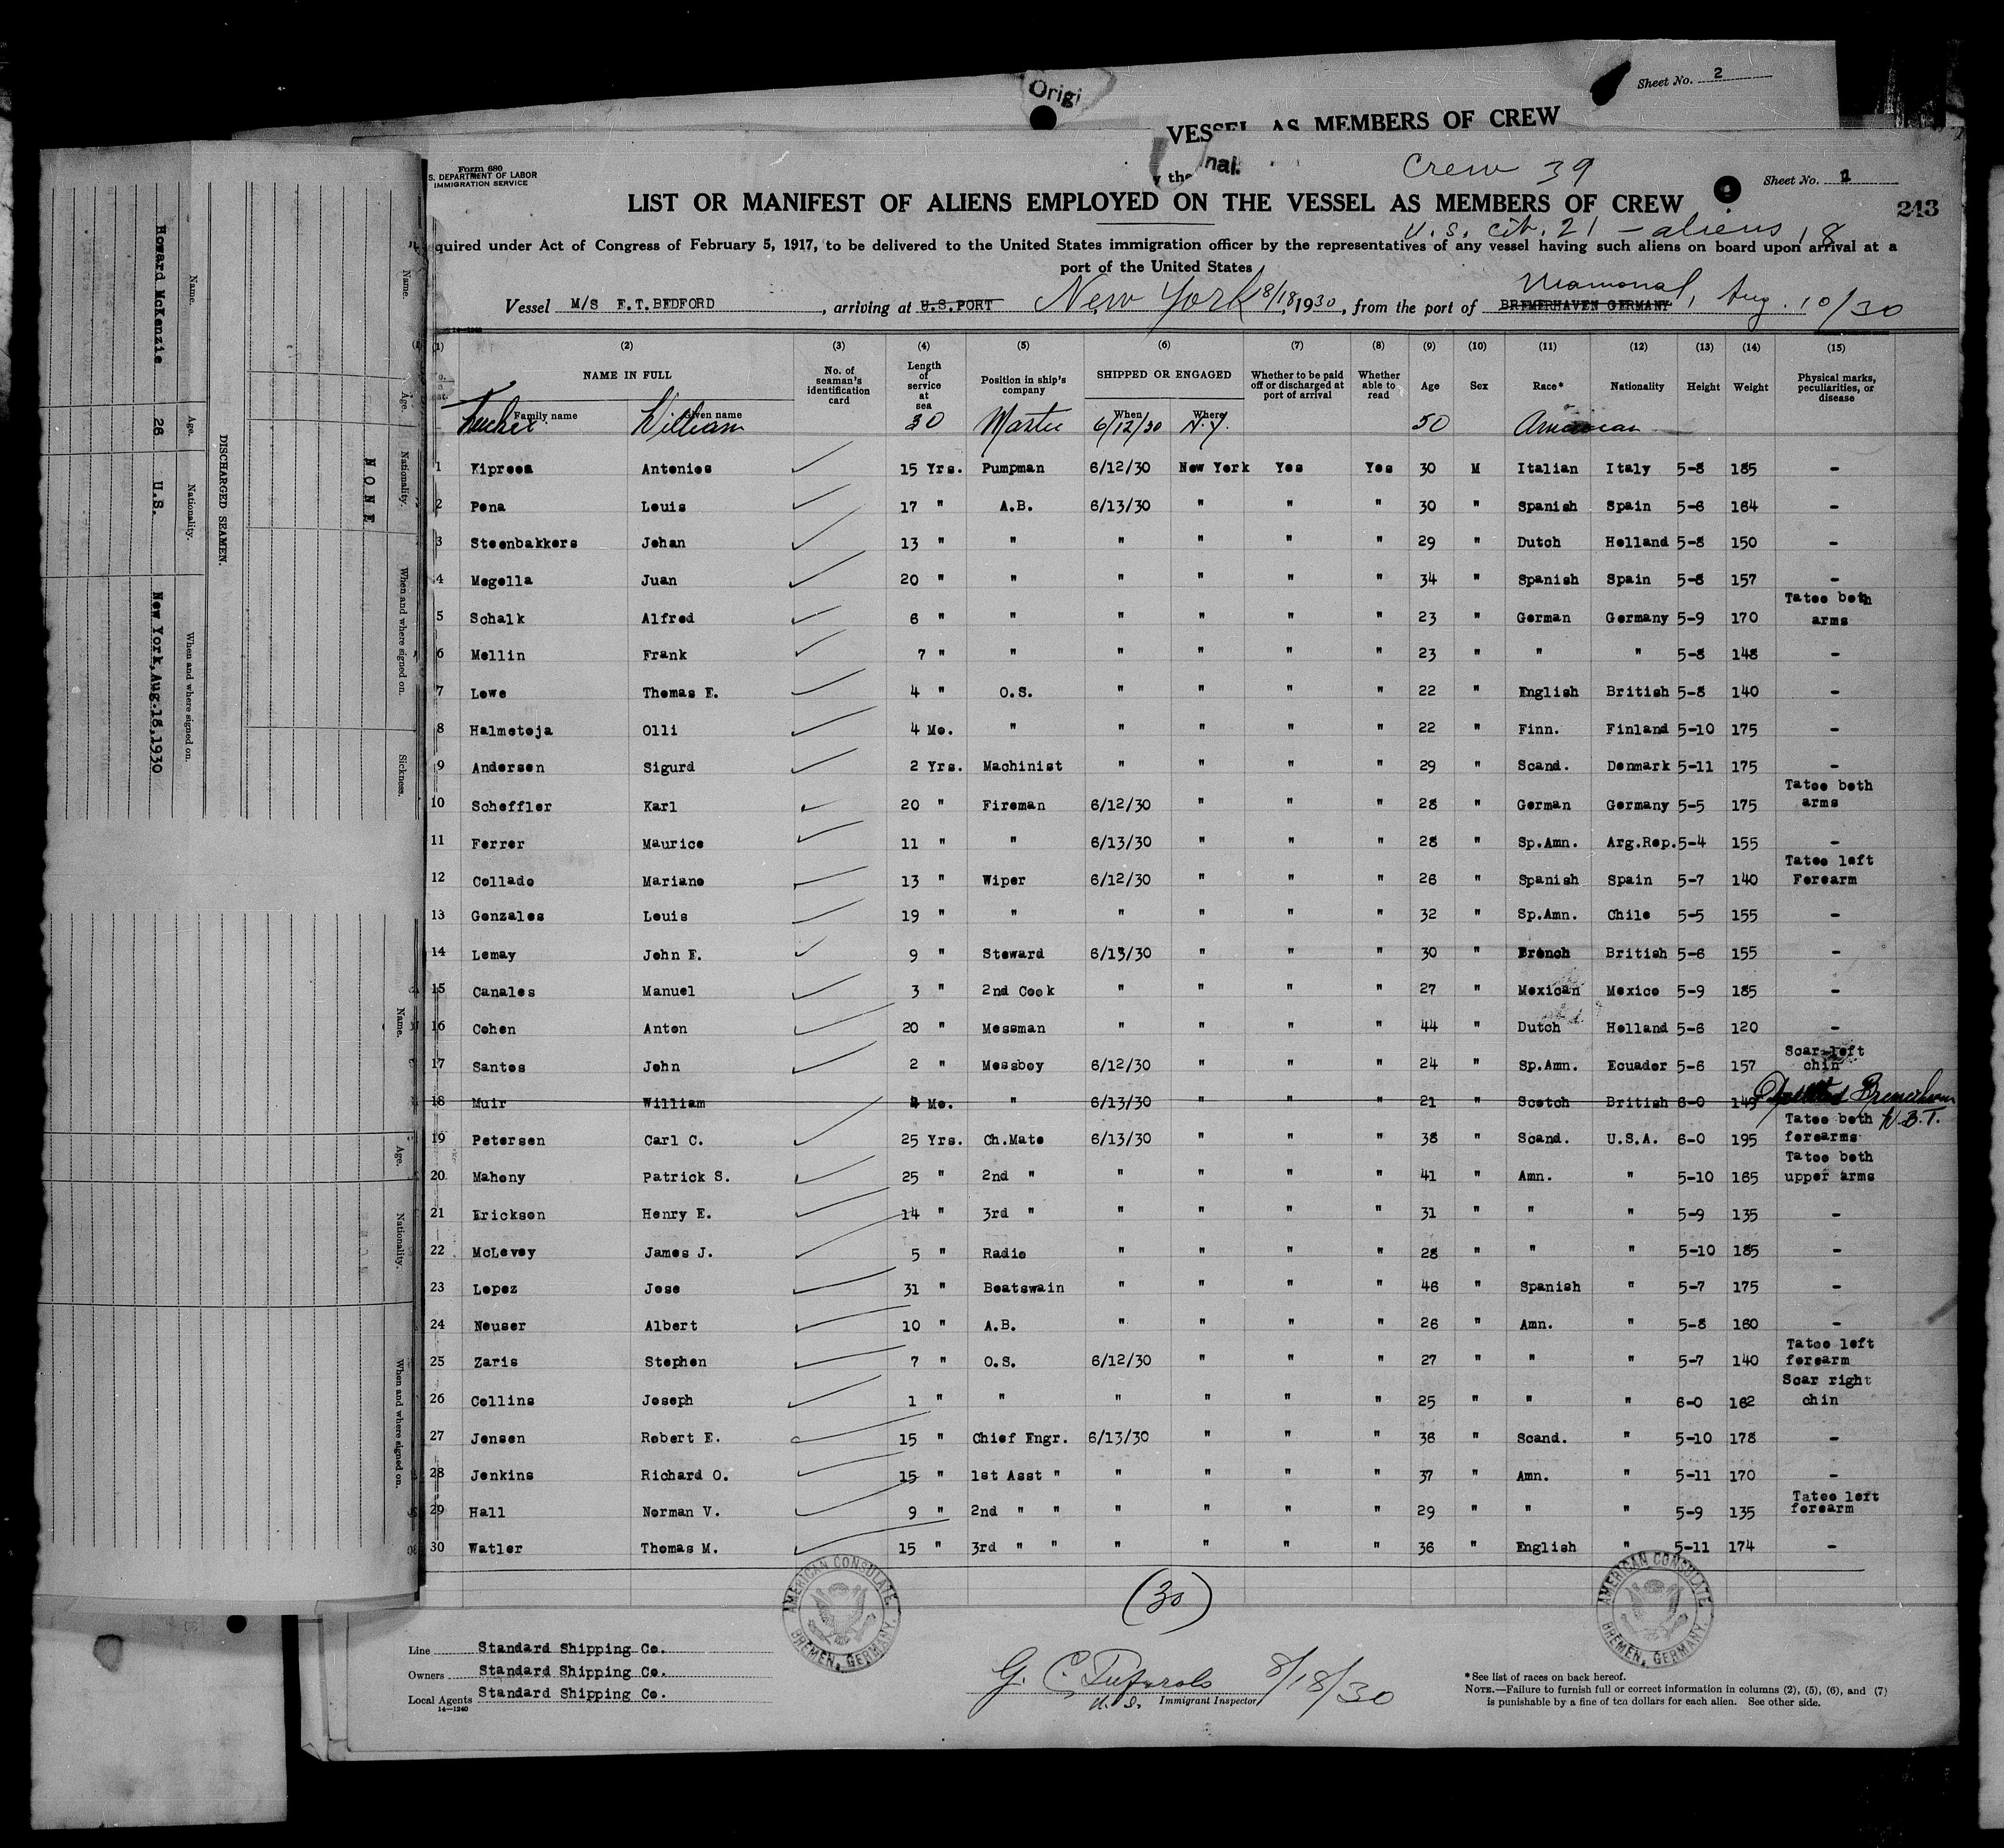 Sheet No. 2
Origi
VESSEL AS MEMBERS OF CREW
nal.
y the
Crew 39
Form 680
S. DEPARTMENT OF LABOR
IMMIGRATION SERVICE
Sheet No. 1
243
LIST OR MANIFEST OF ALIENS EMPLOYED ON THE VESSEL AS MEMBERS OF CREW
U.S. cit. 21 – aliens 18
quired under Act of Congress of February 5, 1917, to be delivered to the United States immigration officer by the representatives of any vessel having such aliens on board upon arrival at a
port of the United States
Vessel M/S F.T.BEDFORD, arriving at U.S.PORT New York 8/18, 1930, from the port of BREMERHAVEN GERMANY, Aug. 10/30
(1) (2) (3) (4) (5) (6) (7) (8) (9) (10) (11) (12) (13) (14) (15)
NAME IN FULL
Family name Given name
No. of seaman's identification card
Length of service at sea
Position in ship's company
SHIPPED OR ENGAGED
When Where
Whether to be paid off or discharged at port of arrival
Whether able to read
Age Sex Race* Nationality Height Weight
Physical marks, peculiarities, or disease
William 30 Master 6/12/30 N.Y. 50 American
1 Kiprees Antonios 15 Yrs. Pumpman 6/12/30 New York Yes Yes 30 M Italian Italy 5-8 185 -
2 Pena Louis 17 " A.B. 6/13/30 " " " 30 " Spanish Spain 5-6 164 -
3 Steenbakkers Johan 13 " " " " " " 29 " Dutch Holland 5-8 150 -
4 Megolla Juan 20 " " " " " " 34 " Spanish Spain 5-8 157 -
5 Schalk Alfred 6 " " " " " " 23 " German Germany 5-9 170 Tatoo both arms
6 Mellin Frank 7 " " " " " " 23 " " " 5-8 148 -
7 Lowe Thomas E. 4 " O.S. " " " " 22 " English British 5-8 140 -
8 Halmetoja Olli 4 Mo. " " " " " 22 " Finn. Finland 5-10 175 -
9 Andersen Sigurd 2 Yrs. Machinist " " " " 29 " Scand. Denmark 5-11 175 -
10 Scheffler Karl 20 " Fireman 6/12/30 " " " 28 " German Germany 5-5 175 Tatoo both arms
11 Ferrer Maurice 11 " " 6/13/30 " " " 28 " Sp.Amn. Arg.Rep. 5-4 155 -
12 Collado Mariano 13 " Wiper 6/12/30 " " " 26 " Spanish Spain 5-7 140 Tatoo left Forearm
13 Gonzales Louis 19 " " " " " " 32 " Sp.Amn. Chile 5-5 155 -
14 Lemay John E. 9 " Steward 6/13/30 " " " 30 " French British 5-6 155 -
15 Canales Manuel 3 " 2nd Cook " " " " 27 " Mexican Mexico 5-9 185 -
16 Cohen Anton 20 " Messman " " " " 44 " Dutch Holland 5-6 120 -
17 Santos John 2 " Messboy 6/12/30 " " " 24 " Sp.Amn. Ecuador 5-6 157 Scar left chin
18 Muir William 4 Mo. " 6/13/30 " " " 21 " Scotch British 6-0 149 N.B.T.
19 Petersen Carl C. 25 Yrs. Ch.Mate 6/13/30 " " " 38 " Scand. U.S.A. 6-0 195 Tatoo both forearms
20 Mahony Patrick S. 25 " 2nd " " " " " 41 " Amn. " 5-10 165 Tatoo both upper arms
21 Erickson Henry E. 14 " 3rd " " " " " 31 " " " 5-9 135 -
22 McLevey James J. 5 " Radio " " " " 28 " " " 5-10 185 -
23 Lopez Jose 31 " Boatswain " " " " 46 " Spanish " 5-7 175 -
24 Neuser Albert 10 " A.B. " " " " 26 " Amn. " 5-8 160 -
25 Zaris Stephen 7 " O.S. 6/12/30 " " " 27 " " " 5-7 140 Tatoo left forearm
26 Collins Joseph 1 " " " " " " 25 " " " 6-0 162 Scar right chin
27 Jensen Robert E. 15 " Chief Engr. 6/13/30 " " " 36 " Scand. " 5-10 178 -
28 Jenkins Richard O. 15 " 1st Asst " " " " " 37 " Amn. " 5-11 170 -
29 Hall Norman V. 9 " 2nd " " " " " " 29 " " " 5-9 135 Tatoo left forearm
30 Watler Thomas M. 15 " 3rd " " " " " " 36 " English " 5-11 174 -
(30)
AMERICAN CONSULATE BREMEN, GERMANY.
AMERICAN CONSULATE BREMEN, GERMANY.
Line Standard Shipping Co.
Owners Standard Shipping Co.
Local Agents Standard Shipping Co.
14—1240
G. C. 8/18/30
U.S. Immigrant Inspector
*See list of races on back hereof.
NOTE.—Failure to furnish full or correct information in columns (2), (5), (6), and (7)
is punishable by a fine of ten dollars for each alien. See other side.
DISCHARGED SEAMEN.
Name. Age. Nationality. When and where signed on.
Howard McKenzie 26 U.S. New York, Aug.18,1930
Name. Age. Nationality. When and where signed on. Sickness.
NONE
Name. Age. Nationality. When and where signed on.